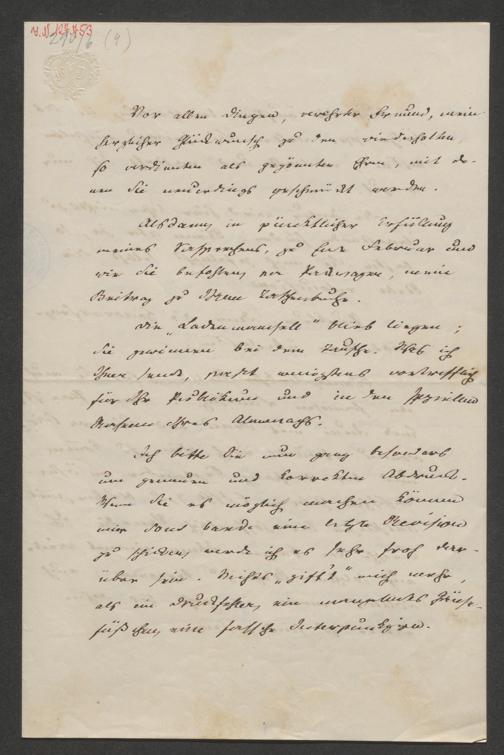 (9)
Vor allen Dingen, verehrter Freund, mein
herzlicher Glückwunsch zu den wiederholten
so verdienten als gegönnten Ehren, mit de-
nen Sie neuerdings geschmückt worden.
Alsdann, in pünktlicher Erfüllung
meines Versprechens, zu Ende Februar und
wie Sie befohlen, meine
Beitrag zu Ihrem Taschenbuche.
Die „Ladenmamsell" blieb liegen;
Sie gewinnen bei dem Tausche. Was ich
Ihnen sende, paßt wenigstens vortrefflich
für Ihr Publikum und in den speziellen
Rahmen Ihres Almanachs.
Ich bitte Sie nun ganz besonders
um genauen und korrekten Abdruck.
Wenn Sie es möglich machen können
mir eine letzte Revision
zu schicken, werde ich es sehr froh dar-
über sein. Nichts „gift't" mich mehr,
als ein Druckfehler, ein Gänse-
füßchen, eine falsche Interpunktion.